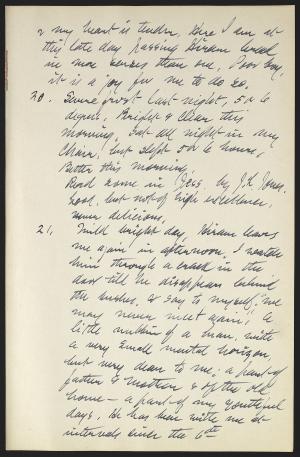 & my heart is tender. Here I am at
this late day passing Hiram bread
in more senses than one. Poor boy,
it is a joy for me to do so.
20. Severe frost last night, 5 or 6
degrees. Bright & clear this
morning. Sat all night in my
chair, but slept 5 or 6 hours,
Better this morning.
Read some in Jess. by J.L. Jones.
Good, but not of high excellence,
never delicious.
21. Mild bright day, Hiram leaves
me again in afternoon. I watch
him through a crack in the
door till he disappears behind
the bushes, & say to myself, "we
may never meet again"; a
little of a man, with
a very small mental horizon,
but very dear to me; a part of
father & mother & of the old
home — a part of my youthful
days. He has been with me at
intervals since the 6th